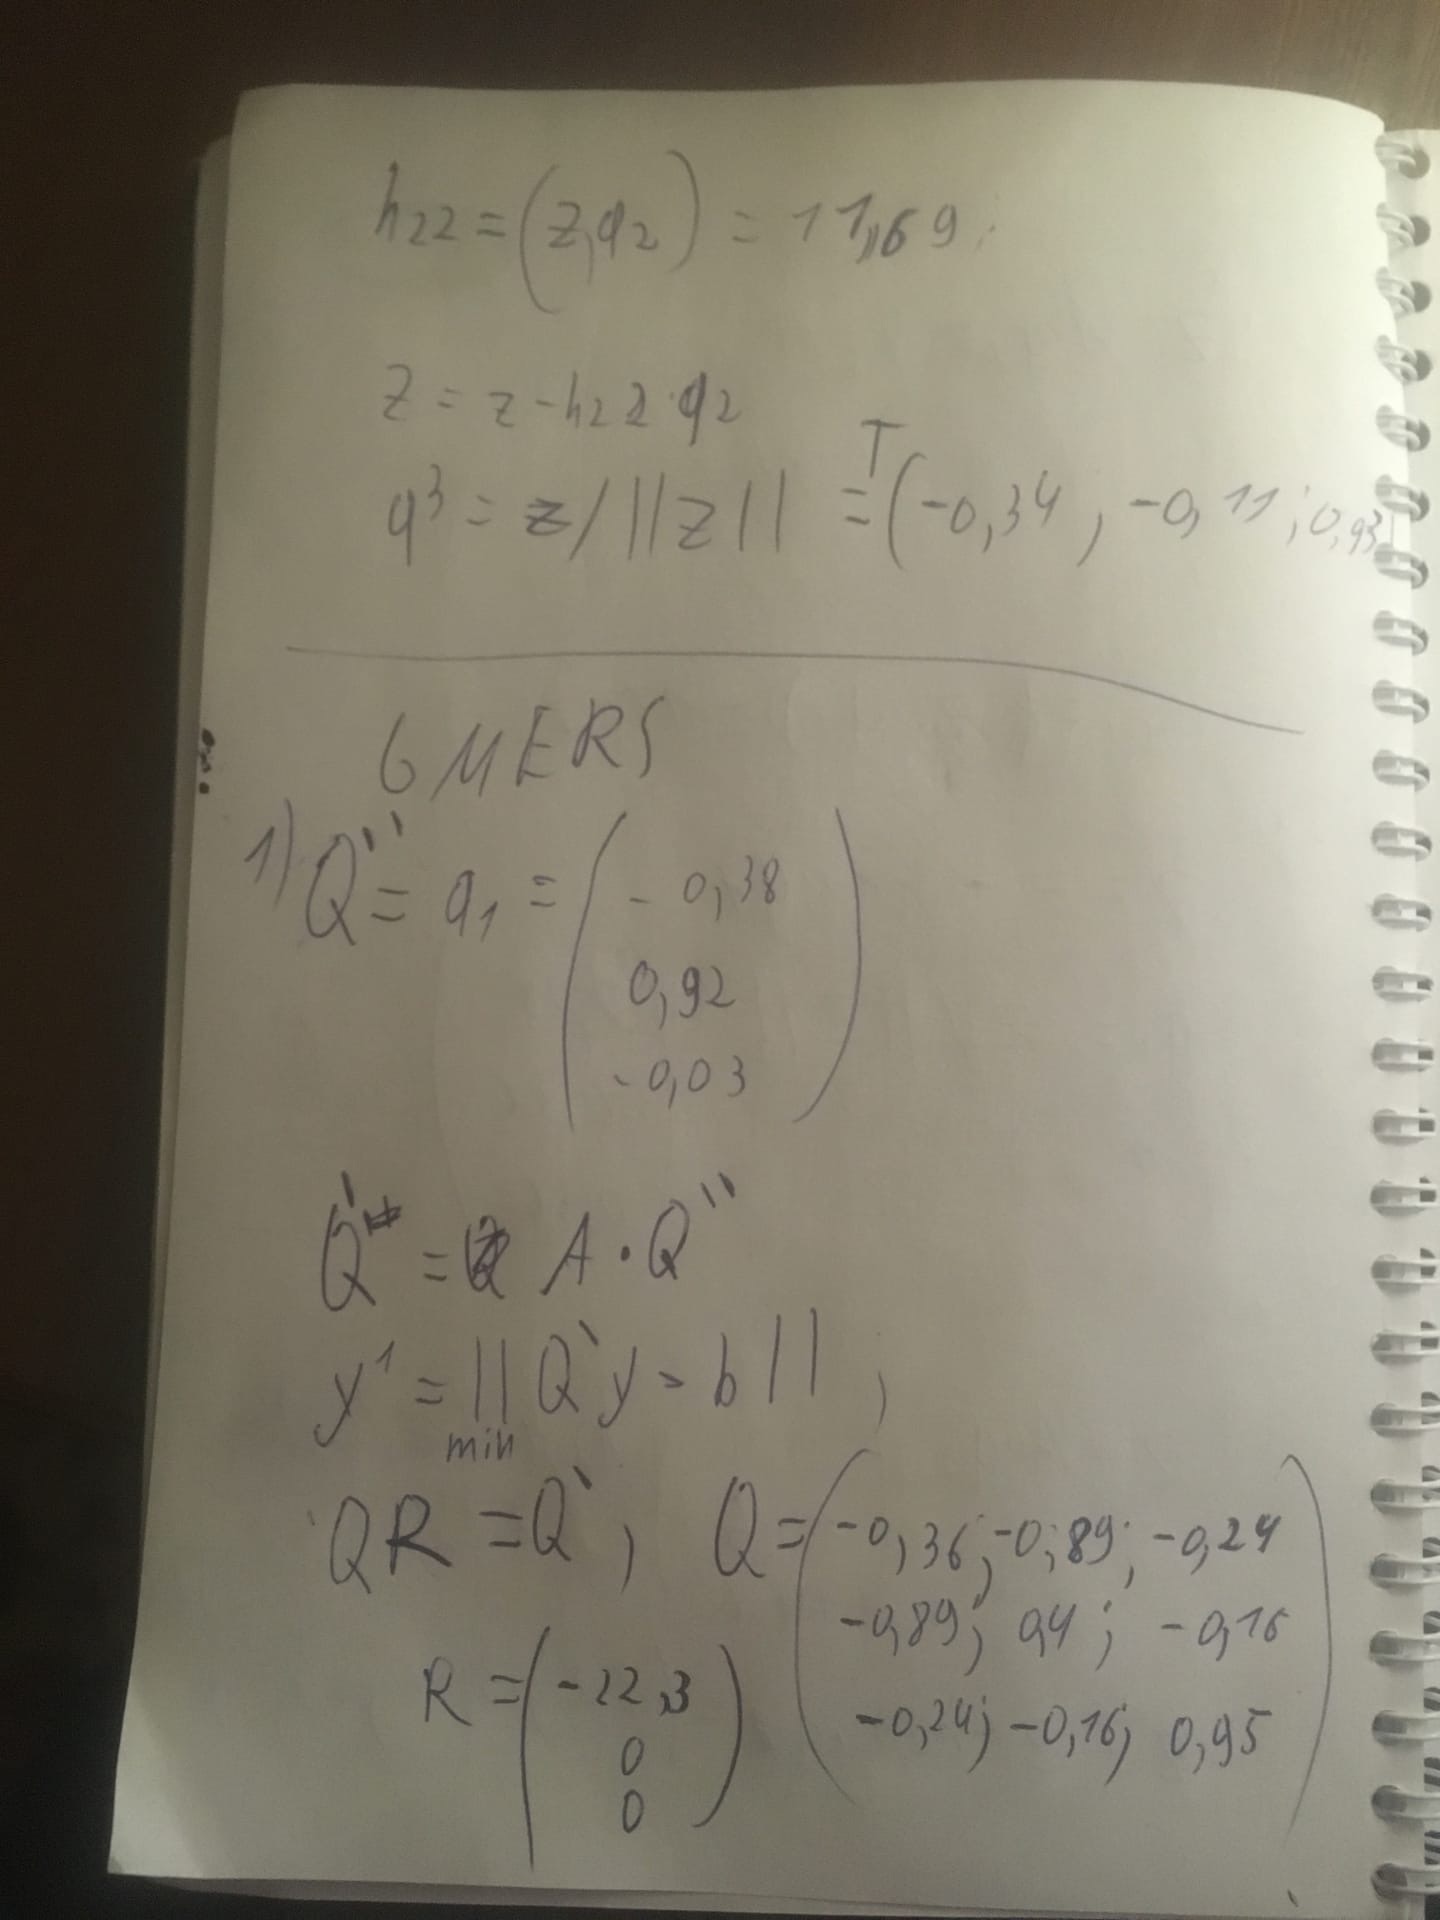 h22 = (z, q2) = 11,69;
z = z - h22 · q2
q³ = z / ||z|| =ᵀ (-0,34, -0,11; 0,93)
GMERS
1) Q'' = q₁ = ( -0,38
0,92
-0,03 )
Q' = A · Q''
y¹ = || Q`y - b || ,
min
QR = Q` , Q = ( -0,36; -0,89; -0,24
-0,89; 0,4; -0,16
R = ( -22,3
-0,24; -0,16; 0,95 )
0
0 )